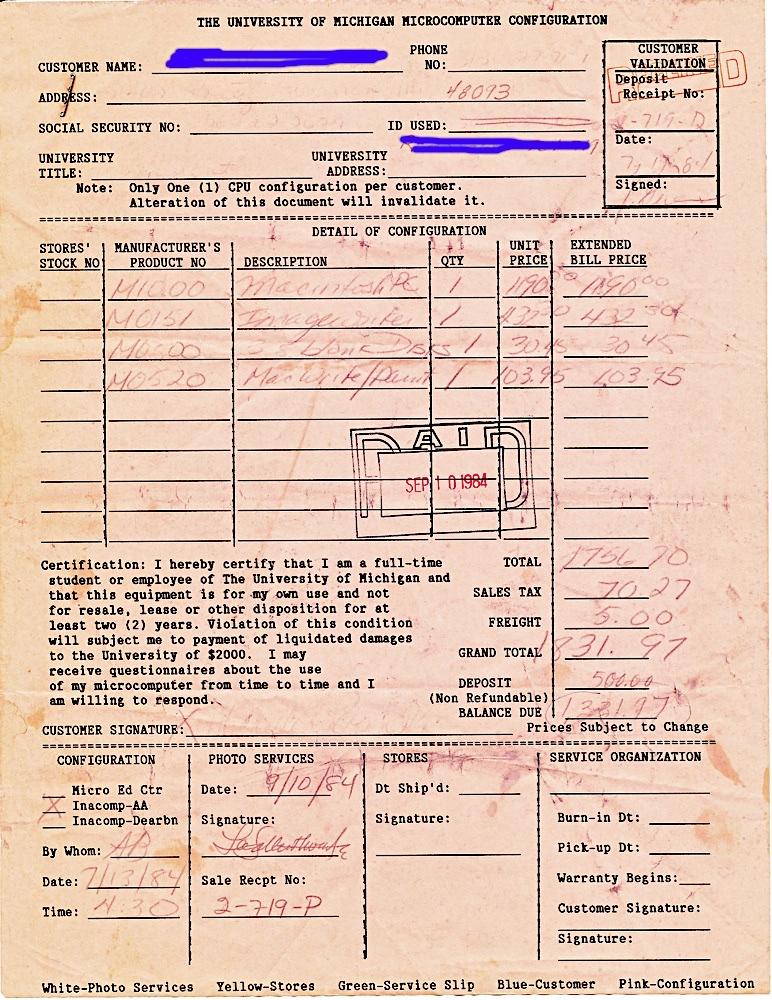 THE UNIVERSITY OF MICHIGAN MICROCOMPUTER CONFIGURATION
CUSTOMER NAME:
PHONE NO:
ADDRESS: 48093
SOCIAL SECURITY NO:
ID USED:
UNIVERSITY TITLE:
UNIVERSITY ADDRESS:
Note: Only One (1) CPU configuration per customer.
Alteration of this document will invalidate it.
CUSTOMER VALIDATION
Deposit Receipt No:
-719-D
Date:
Signed:
DETAIL OF CONFIGURATION
STORES' STOCK NO
MANUFACTURER'S PRODUCT NO
DESCRIPTION
QTY
UNIT PRICE
EXTENDED BILL PRICE
M1000 Macintosh PC 1 1190.00 1190.00
M0151 Imagewriter 1 432.30 432.30
1 30.45 30 45
M0520 MacWrite/Paint 1 103.95 103.95
PAID
SEP 10 1984
Certification: I hereby certify that I am a full-time
student or employee of The University of Michigan and
that this equipment is for my own use and not
for resale, lease or other disposition for at
least two (2) years. Violation of this condition
will subject me to payment of liquidated damages
to the University of $2000. I may
receive questionnaires about the use
of my microcomputer from time to time and I
am willing to respond.
TOTAL 1756 70
SALES TAX 70.27
FREIGHT 5.00
GRAND TOTAL 1831.97
DEPOSIT 500.00
(Non Refundable)
BALANCE DUE 1331.97
CUSTOMER SIGNATURE:
Prices Subject to Change
CONFIGURATION
Micro Ed Ctr
X Inacomp-AA
Inacomp-Dearbn
By Whom: AB
Date: 7/13/84
Time: 4:30
PHOTO SERVICES
Date: 9/10/84
Signature:
Sale Recpt No:
2-719-P
STORES
Dt Ship'd:
Signature:
SERVICE ORGANIZATION
Burn-in Dt:
Pick-up Dt:
Warranty Begins:
Customer Signature:
Signature:
White-Photo Services Yellow-Stores Green-Service Slip Blue-Customer Pink-Configuration